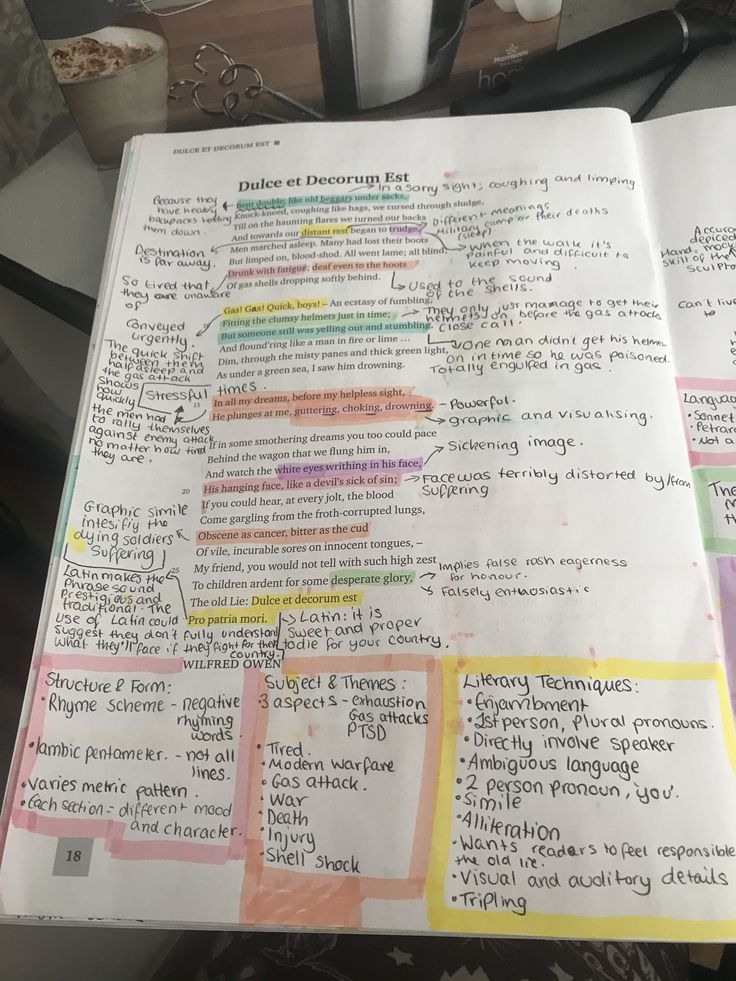 Morrisons
DULCE ET DECORUM EST
Dulce et Decorum Est
In a sorry sight; coughing and limping
Because they
have heavy
backpacks
them down.
Bent double, like old beggars under sacks,
Knock-kneed, coughing like hags, we cursed through sludge,
Till on the haunting flares we turned our backs
And towards our distant rest began to trudge.
Men marched asleep. Many had lost their boots
But limped on, blood-shod. All went lame; all blind;
Drunk with fatigue; deaf even to the hoots
Of gas shells dropping softly behind.
Different meanings
Military camp or their deaths
(sleep)
When the walk it's
painful and difficult to
keep moving.
Destination
is far away.
So tired that
they are unaware
of
Used to the sound
of the shells.
Gas! Gas! Quick, boys! – An ecstasy of fumbling,
Fitting the clumsy helmets just in time;
But someone still was yelling out and stumbling,
And flound'ring like a man in fire or lime ...
Dim, through the misty panes and thick green light,
As under a green sea, I saw him drowning.
They only just manage to get their
helmets on before the gas attack
close call.
One man didn't get his helmet
on in time so he was poisoned.
Totally engulfed in gas.
Conveyed
urgently.
The quick shift
between them
half asleep and
the gas attack
shows
how
quickly
the men had
to rally themselves
against enemy attack
no matter how tired
they are.
Stressful times.
15
In all my dreams, before my helpless sight,
He plunges at me, guttering, choking, drowning.
- Powerful.
graphic and visualising.
If in some smothering dreams you too could pace
Behind the wagon that we flung him in,
And watch the white eyes writhing in his face,
20
His hanging face, like a devil's sick of sin;
If you could hear, at every jolt, the blood
Come gargling from the froth-corrupted lungs,
Obscene as cancer, bitter as the cud
Of vile, incurable sores on innocent tongues, –
25
My friend, you would not tell with such high zest
To children ardent for some desperate glory,
The old Lie: Dulce et decorum est
Pro patria mori.
Sickening image.
Face was terribly distorted by/from
suffering
Graphic simile
intesifiy the
dying soldiers
suffering
Implies false rash eagerness
for honour.
Falsely enthusiastic
Latin makes the
phrase sound
prestigious and
traditional. The
use of Latin could
suggest they don't fully understand
what they'll face if they fight for their
country.
Latin: it is
sweet and proper
to die for your country.
WILFRED OWEN
Structure & Form:
• Rhyme scheme - negative
rhyming
words.
• Iambic pentameter. - not all
lines.
• Varies metric pattern.
• Each section = different mood
and character.
Subject & Themes:
3 aspects - exhaustion
Gas attacks
PTSD
• Tired.
• Modern warfare
• Gas attack.
• War
• Death
• Injury
• Shell shock
Literary Techniques:
• Enjambment
• 1st person, plural pronouns.
• Directly involve speaker
• Ambiguous language
• 2 person pronoun, 'you'.
• Simile
• Alliteration
• Wants readers to feel responsible
the old lie.
• Visual and auditory details
• Tripling
18
Can't live
to
• Sonnet
• Not a